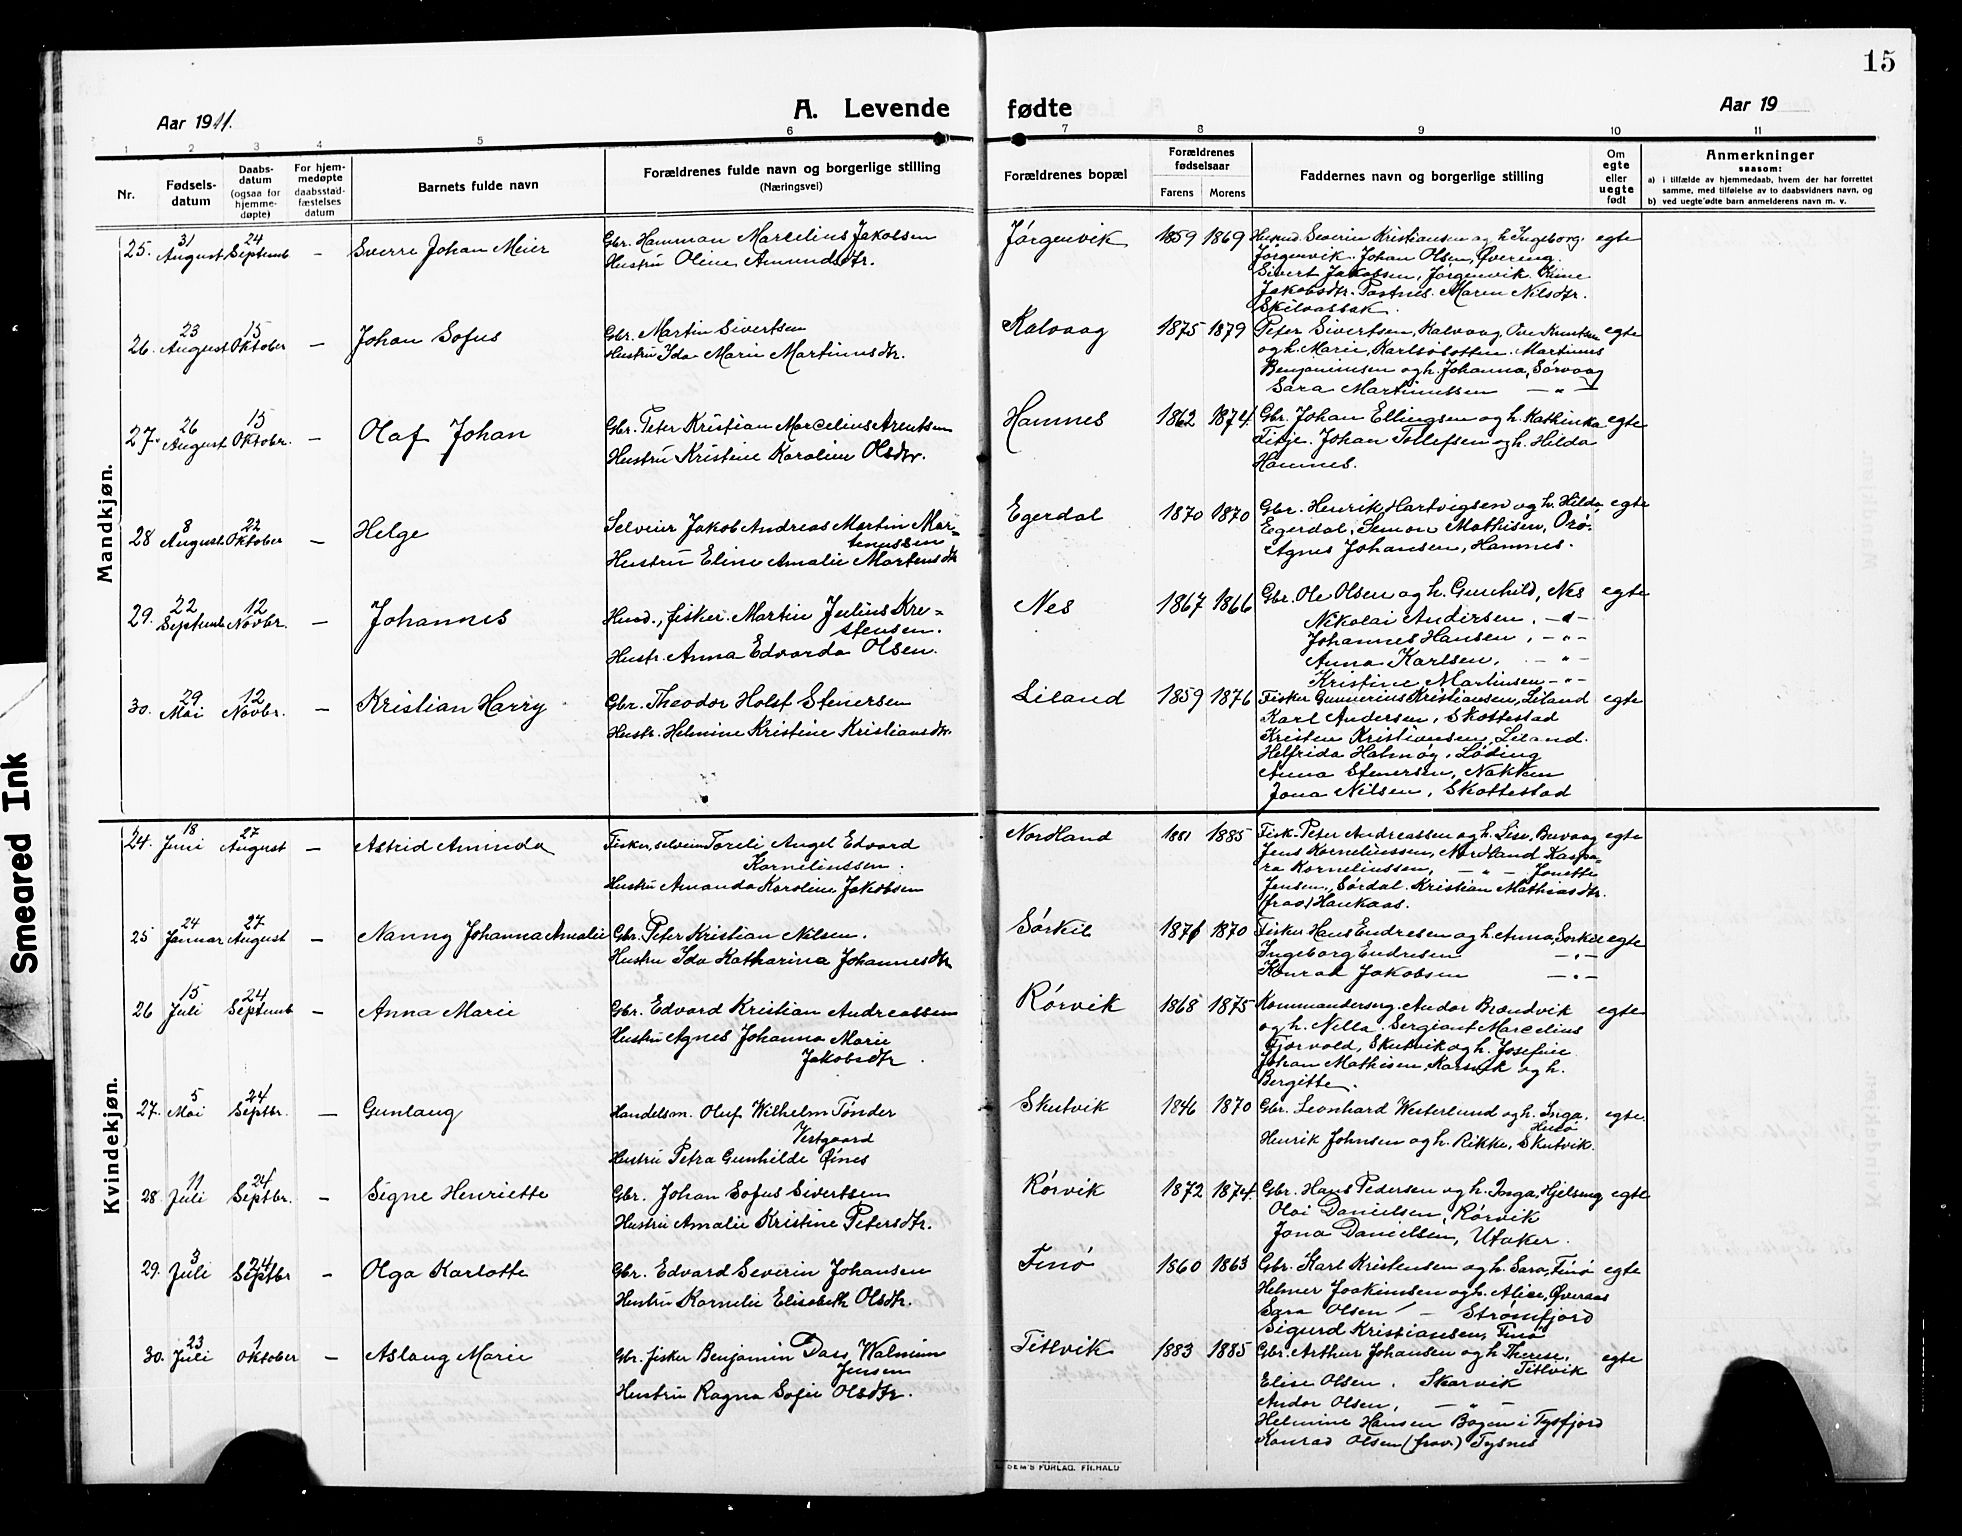 15
Aar 1911.
A. Levende fødte
Aar 19
1 2 3 4 5 6 7 8 9 10 11
Nr.
Fødsels-
datum
Daabs-
datum
(ogsaa for
hjemme-
døpte)
For hjem-
medøpte
daabsstad-
fæstelses
datum
Barnets fulde navn
Forældrenes fulde navn og borgerlige stilling
(Næringsvei)
Forældrenes bopæl
Forældrenes
fødselsaar
Farens Morens
Faddernes navn og borgerlige stilling
Om
egte
eller
uegte
født
Anmerkninger
saasom:
a) i tilfælde av hjemmedaab, hvem der har forrettet
samme, med tilføielse av to daabsvidners navn, og
b) ved uegte fødte barn anmelderens navn m. v.
Mandkjøn.
25. 31 August 24 Septemb – Sverre Johan Meier
Gbr. Hamman Marcelius Jakobsen
Hustru Oline Amundsdtr.
Jørgenvik 1859 1869
Husmd. Severin Kristiansen og h. Ingeborg. egte
Jørgenvik. Johan Olsen, Øvereng.
Sivert Jakobsen, Jørgenvik.
Jakobsdtr. Maren Nilsdtr.
26. 23 August 15 Oktober – Johan Sofus
Gbr. Martin Sivertsen
Hustru Ida Marie Martinusdtr.
Kalvaag 1875 1879
Peter Sivertsen, Kalvaag, Ove Knutsen egte
og h. Marie, Martinus
Benjaminsen og h. Johanna, Sørvaag
Sara Martinussen – " –
27. 26 August 15 Oktobr. – Olaf Johan
Gbr. Peter Kristian Marcelius Arentsen
Hustru Kristine Karoline Olsdtr.
Hamnes 1862 1874.
Gbr. Johan Ellingsen og h. Kathinka egte
Johan Tollefsen og h. Hilda
Hamnes.
28 8 August. 22 Oktober – Helge
Selveier Jakob Andreas Martin Mar-
tinussen
Hustru Eline Amalie Martensdtr
Egerdal 1870 1870
Gbr. Henrik Hartvigsen og h. Hilda egte
Egerdal, Simon Mathisen,
Agnes Johansen, Hamnes.
29. 22 Septemb 12 Novbr. – Johannes
Husmd., fisker. Martin Julius Kre-
stensen.
Hustr. Anna Edvarda Olsen.
Nes 1867 1866
Gbr. Ole Olsen og h. Gunhild, Nes egte
Nikolai Andersen. – " –
Johannes Hansen, – " –
Anna Karlsen, – " –
Kristine Martinsen – " –
30. 29 Mai 12 Novbr. – Kristian Harry
Gbr. Theodor Holst Stenersen
Hustr. Helmine Kristine Kristiansdtr.
Liland 1859 1876
Fisker Gunnerius Kristiansen, Liland egte
Karl Andersen, Skottestad
Kristen Kristiansen, Liland.
Helfrida Halmøy, Løding
Anna Stenersen, Nakken
Jona Nilsen, Skottestad
Kvindekjøn.
24. 18 Juni 27 August – Astrid Aminda
Fisker, selveier Torili Angel Edvard
Korneliussen.
Hustru Amanda Karoline Jakobsen
Nordland 1881 1885
Fisk. Peter Andreassen og h. Lise, egte
Jens Korneliussen, Nordland Kaspa-
ra Korneliussen, – " – Jonette
Jensen, Sørdal. Kristian Mathiasdtr.
(frav) Haukaas.
25 24 Januar 27 August – Nanny Johanna Amalie
Gbr. Peter Kristian Nilsen.
Hustru Ida Katharina Johannesdtr
Sørkil 1871 1870
Fisker Hans Endresen og h. Anna, Sørkil egte
Ingeborg Endresen – " –
Konrad Jakobsen – " –
26 15 Juli 24 Septemb – Anna Marie
Gbr. Edvard Kristian Andreassen
Hustru Agnes Johanna Marie
Jakobsdtr.
Rørvik 1868 1875
Kommandersrg. Andor Brændvik egte
og h. Nella. Sergiant Marcelius
Fjorvold, Skutvik og h. Josefine
Johan Mathisen, Korsvik og h.
Bergitte.
27. 5 Mai 24 Septbr. – Gunlaug
Handelsm. Oluf Wilhelm Tønder
Vestgaard
Hustru Petra Gunhilde Øines
Skutvik 1846 1870
Gbr. Leonhard Westerlund og h. Inga. egte.
Henrik Johnsen og h. Rikke, Skutvik.
28. 11 Juli 24 Septbr. – Signe Henriette
Gbr. Johan Sofus Sivertsen
Hustru Amalie Kristine Petersdtr.
Rørvik 1872 1874.
Gbr. Hans Pedersen og h. Inga, Hjelseng egte
Olai Danielsen, Rørvik
Jona Danielsen, Utaker.
29. 3 Juli 24 Septbr – Olga Karlotte
Gbr. Edvard Severin Johansen
Hustru Kornelie Elisabeth Olsdtr.
Finø 1860 1863
Gbr. Karl Kristensen og h. Sara, Finø egte
Helmer Joakimsen og h. Alice, Øveraas
Sara Olsen – Strømfjord
Sigurd Kristiansen, Finø
30. 23 Juli 1 Oktober – Aslaug Marie
Gbr. fisker Benjamin Dass Walnum
Jensen
Hustru Ragna Sofie Olsdtr.
Titlvik 1883 1885
Gbr. Arthur Johansen og h. Therese, egte
Titlvik
Elise Olsen, Skarvik
Andor Olsen, – " –
Helmine Hansen Bogen i Tysfjord
Konrad Olsen (frav.) Tysnes
SEM'S FORLAG. FR.HALD
Smeared Ink